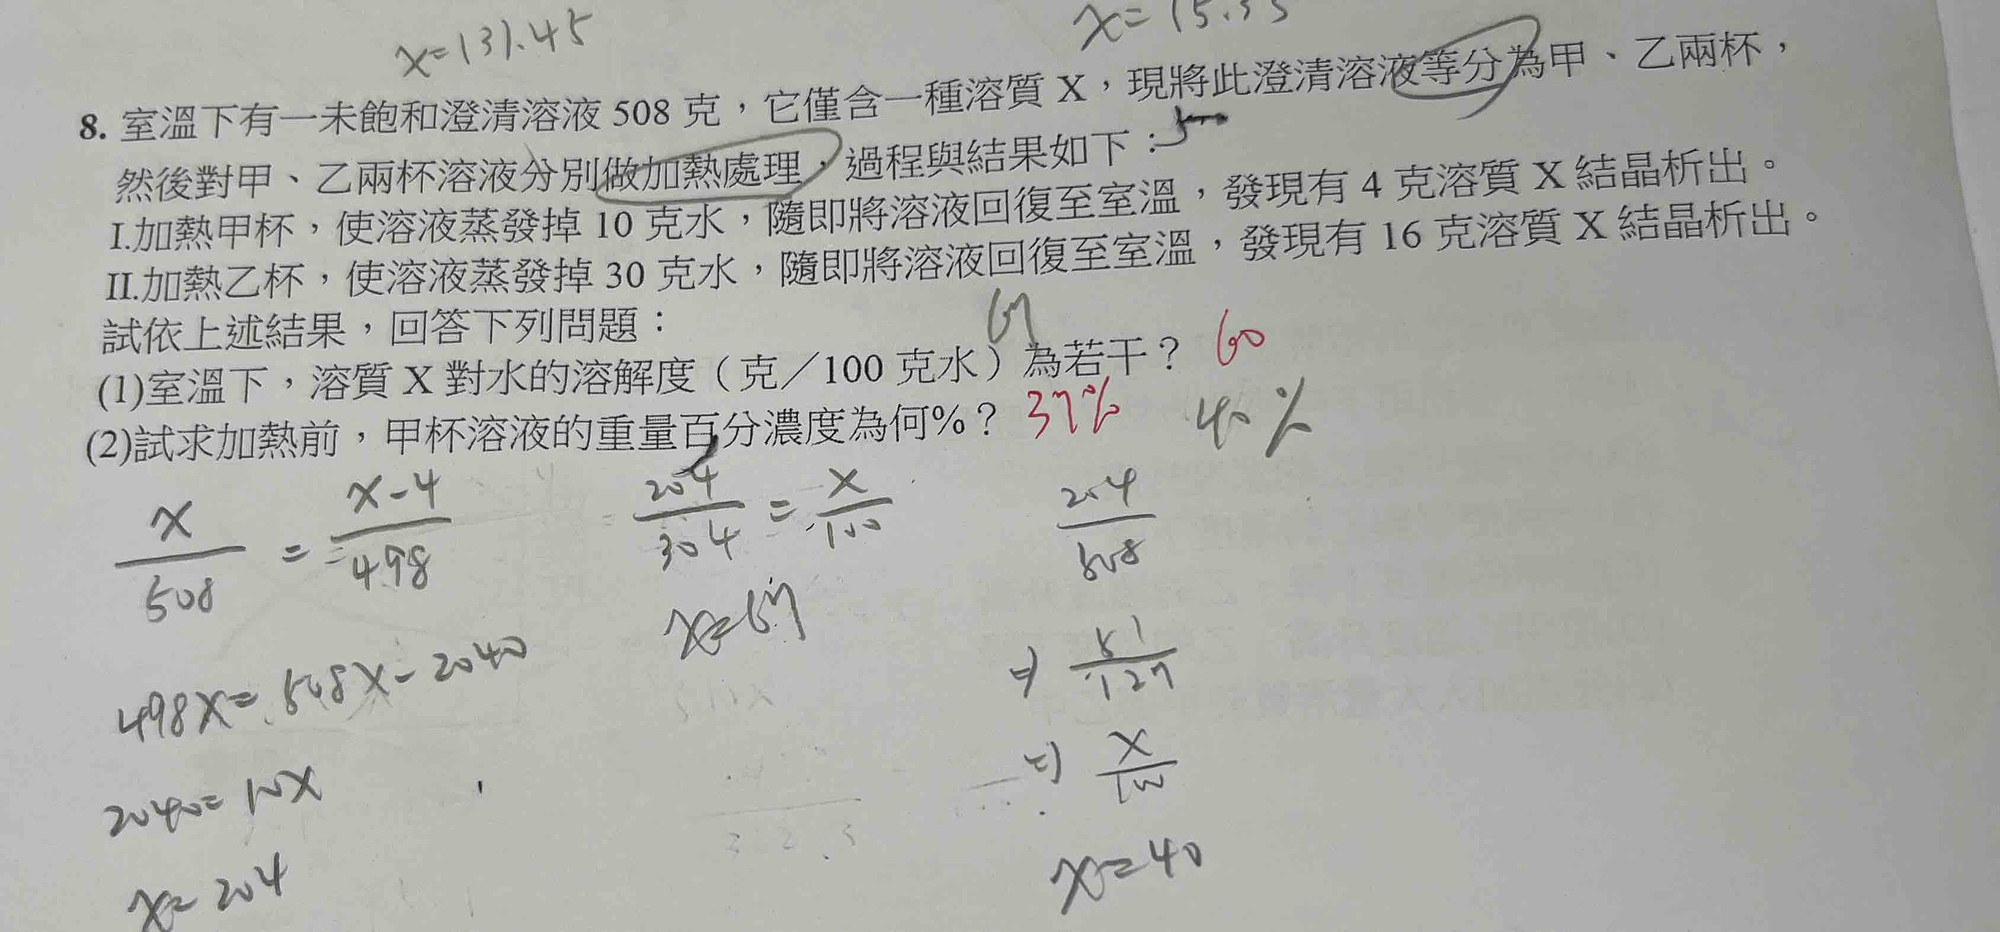 x=131.45
x=15.35
8. 室溫下有一未飽和澄清溶液 508 克，它僅含一種溶質 X，現將此澄清溶液等分為甲、乙兩杯，
然後對甲、乙兩杯溶液分別做加熱處理，過程與結果如下：
I.加熱甲杯，使溶液蒸發掉 10 克水，隨即將溶液回復至室溫，發現有 4 克溶質 X 結晶析出。
II.加熱乙杯，使溶液蒸發掉 30 克水，隨即將溶液回復至室溫，發現有 16 克溶質 X 結晶析出。
試依上述結果，回答下列問題：
67
(1)室溫下，溶質 X 對水的溶解度（克／100 克水）為若干？ 60
(2)試求加熱前，甲杯溶液的重量百分濃度為何%？ 37% 40%
x/508 = x-4/498
204/304 = x/100
x=67
204/508
⇒ 51/127
⇒ x/100
x=40
498x=508x-2040
2040=10x
x=204